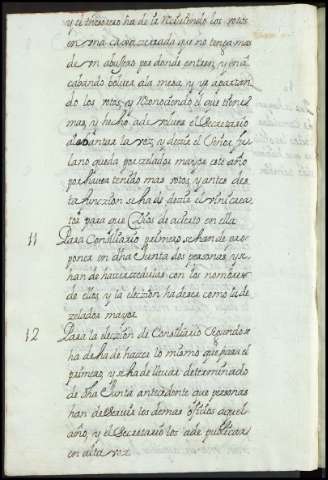 y el thesorero ha de ir recibiendo los votos
en una caxa cerrada que no tenga mas
de un abujero por donde entren, y en a
cabando bolvera a la mesa, y se apartan
do los votos, y reconociendo el que tiene
mas, y hecho
al
levantar la voz, y decir el Señor fu
lano queda por zelador mayor este año
por haver tenido mas votos, y antes des
ta funcion se ha de decir el
para que Dios de acierto en ella
11 Para Consiliario primero se han de pro
poner en dha Junta dos personas, y se
han de hacer cedulas con los nombres
de ellos, y la eleccion ha de ser como la de
zelador mayor
12 Para la eleccion de Consiliario segundo se
ha de hacer lo mismo que para el
primero, y se ha de llevar determinado
de dha Junta antecedente que personas
han de servir los demas oficios aquel
año, y el Secretario los ade publicar
en alta voz